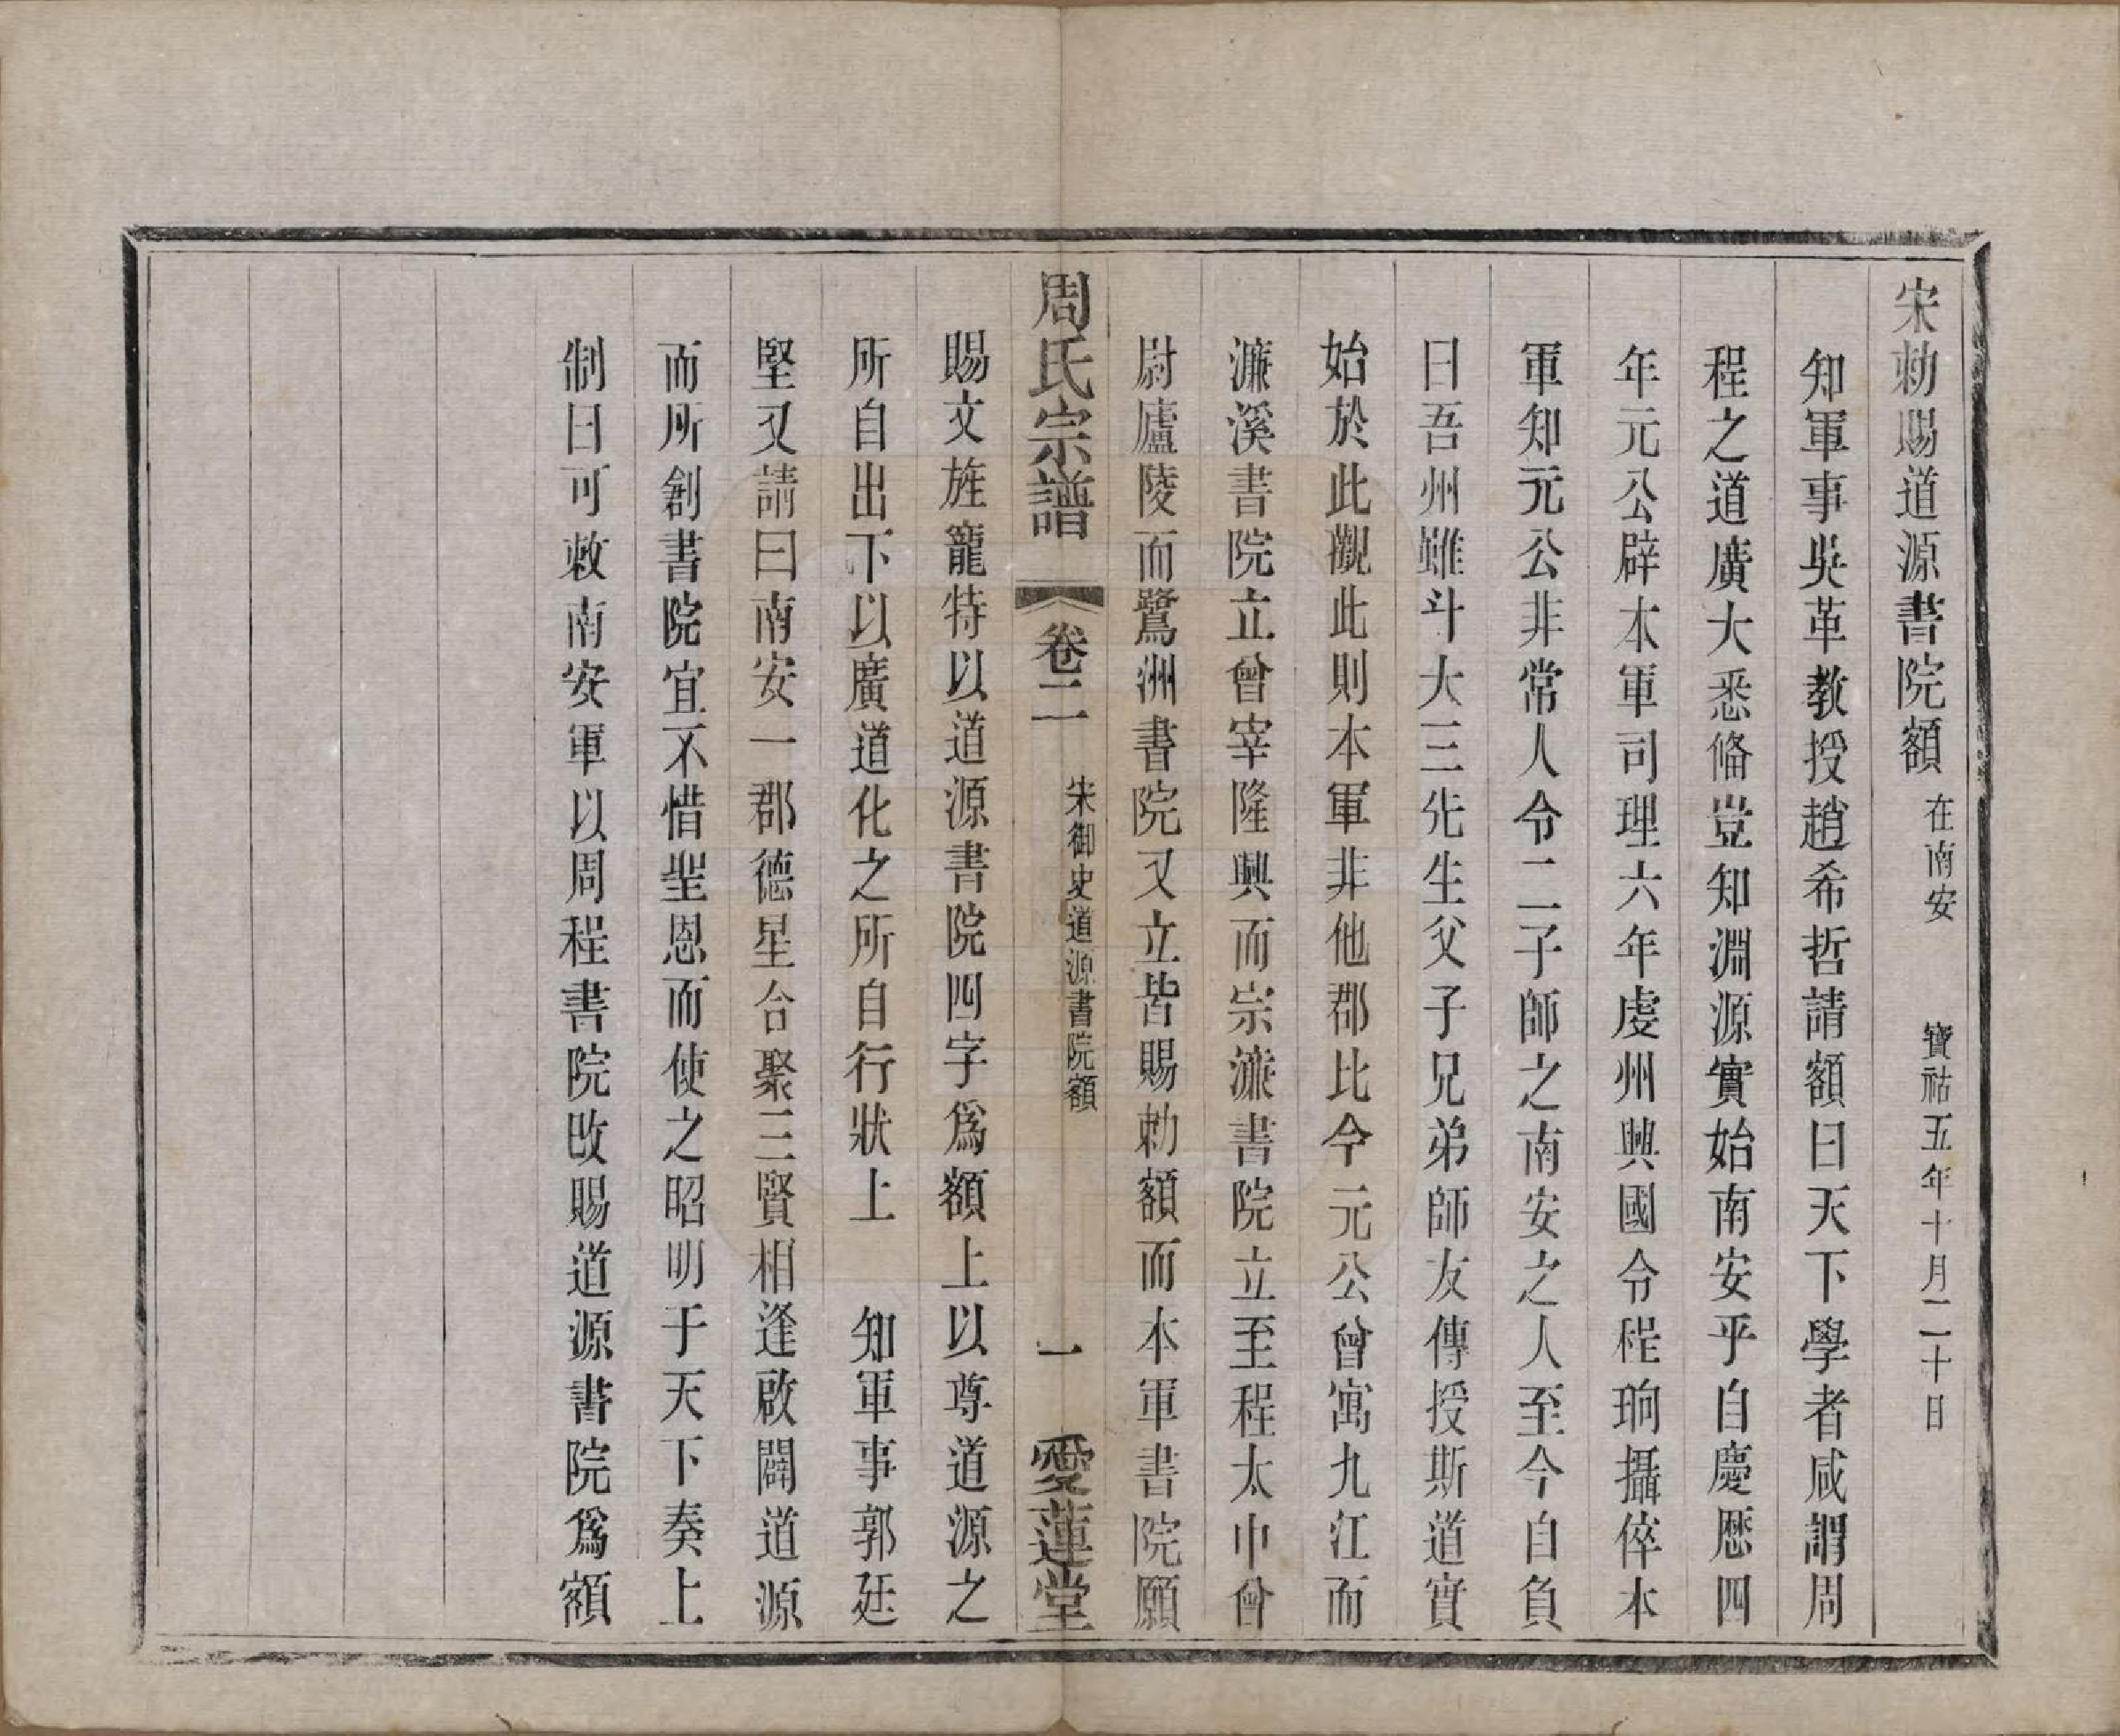 宋勅賜道源書院額 在南安 寶祐五年十月二十日
知軍事吳革教授趙希哲請額曰天下學者咸謂周
程之道廣大悉俻豈知淵源實始南安乎自慶歷四
年元公辟本軍司理六年虔州興國令程珦攝倅本
軍知元公非常人令二子師之南安之人至今自負
曰吾州雖斗大三先生父子兄弟師友傳授斯道實
始於此觀此則本軍非他郡比今元公曾寓九江而
濂溪書院立曾宰隆興而宗濂書院立至程太中曾
尉廬陵而鷺洲書院又立皆賜勅額而本軍書院願
周氏宗譜 卷二 宋御史道源書院額 一 愛蓮堂
賜文旌寵特以道源書院四字爲額上以尊道源之
所自出下以廣道化之所自行狀上 知軍事郭廷
堅又請曰南安一郡德星合聚三賢相逢啟闢道源
而所創書院宜不惜聖恩而使之昭明于天下奏上
制曰可敕南安軍以周程書院改賜道源書院爲額